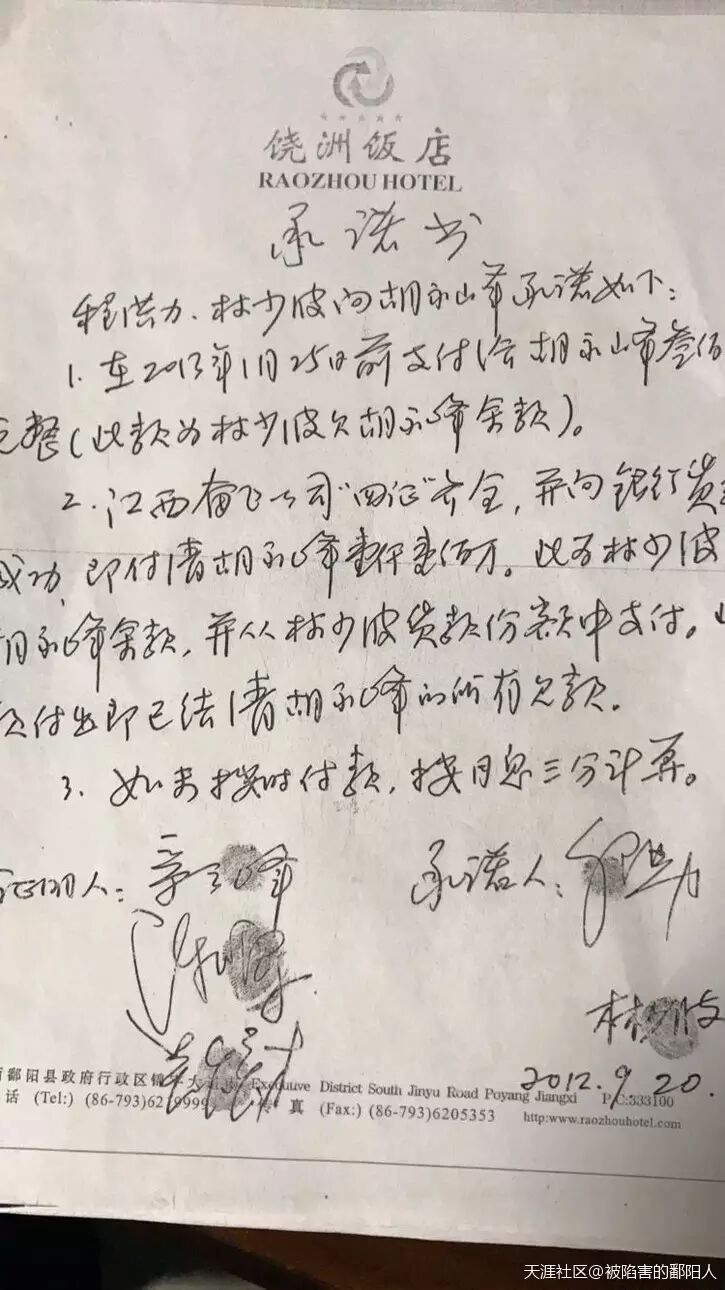 饶洲饭店
RAOZHOU HOTEL
承诺书
程洪力、林少波向胡永峰承诺如下：
1. 在2013年1月25日前支付给胡永峰叁佰
元整（此款为林少波欠胡永峰余款）。
2. 江西奋飞公司"四证"齐全，并向银行贷
成功，即付清胡永峰壹仟壹佰万。此为林少波
胡永峰余款，并从林少波贷款份额中支付。
款付出即已结清胡永峰的所有欠款。
3. 如未按时付款，按月息三分计算。
证明人：
承诺人：程洪力
林少波
2012.9.20.
鄱阳县政府行政区 大 Executive District South Jinyu Road Poyang Jiangxi P.C:333100
话 (Tel:) (86-793)62 9999 真 (Fax:) (86-793)6205353 http:www.raozhouhotel.com
天涯社区@被陷害的鄱阳人